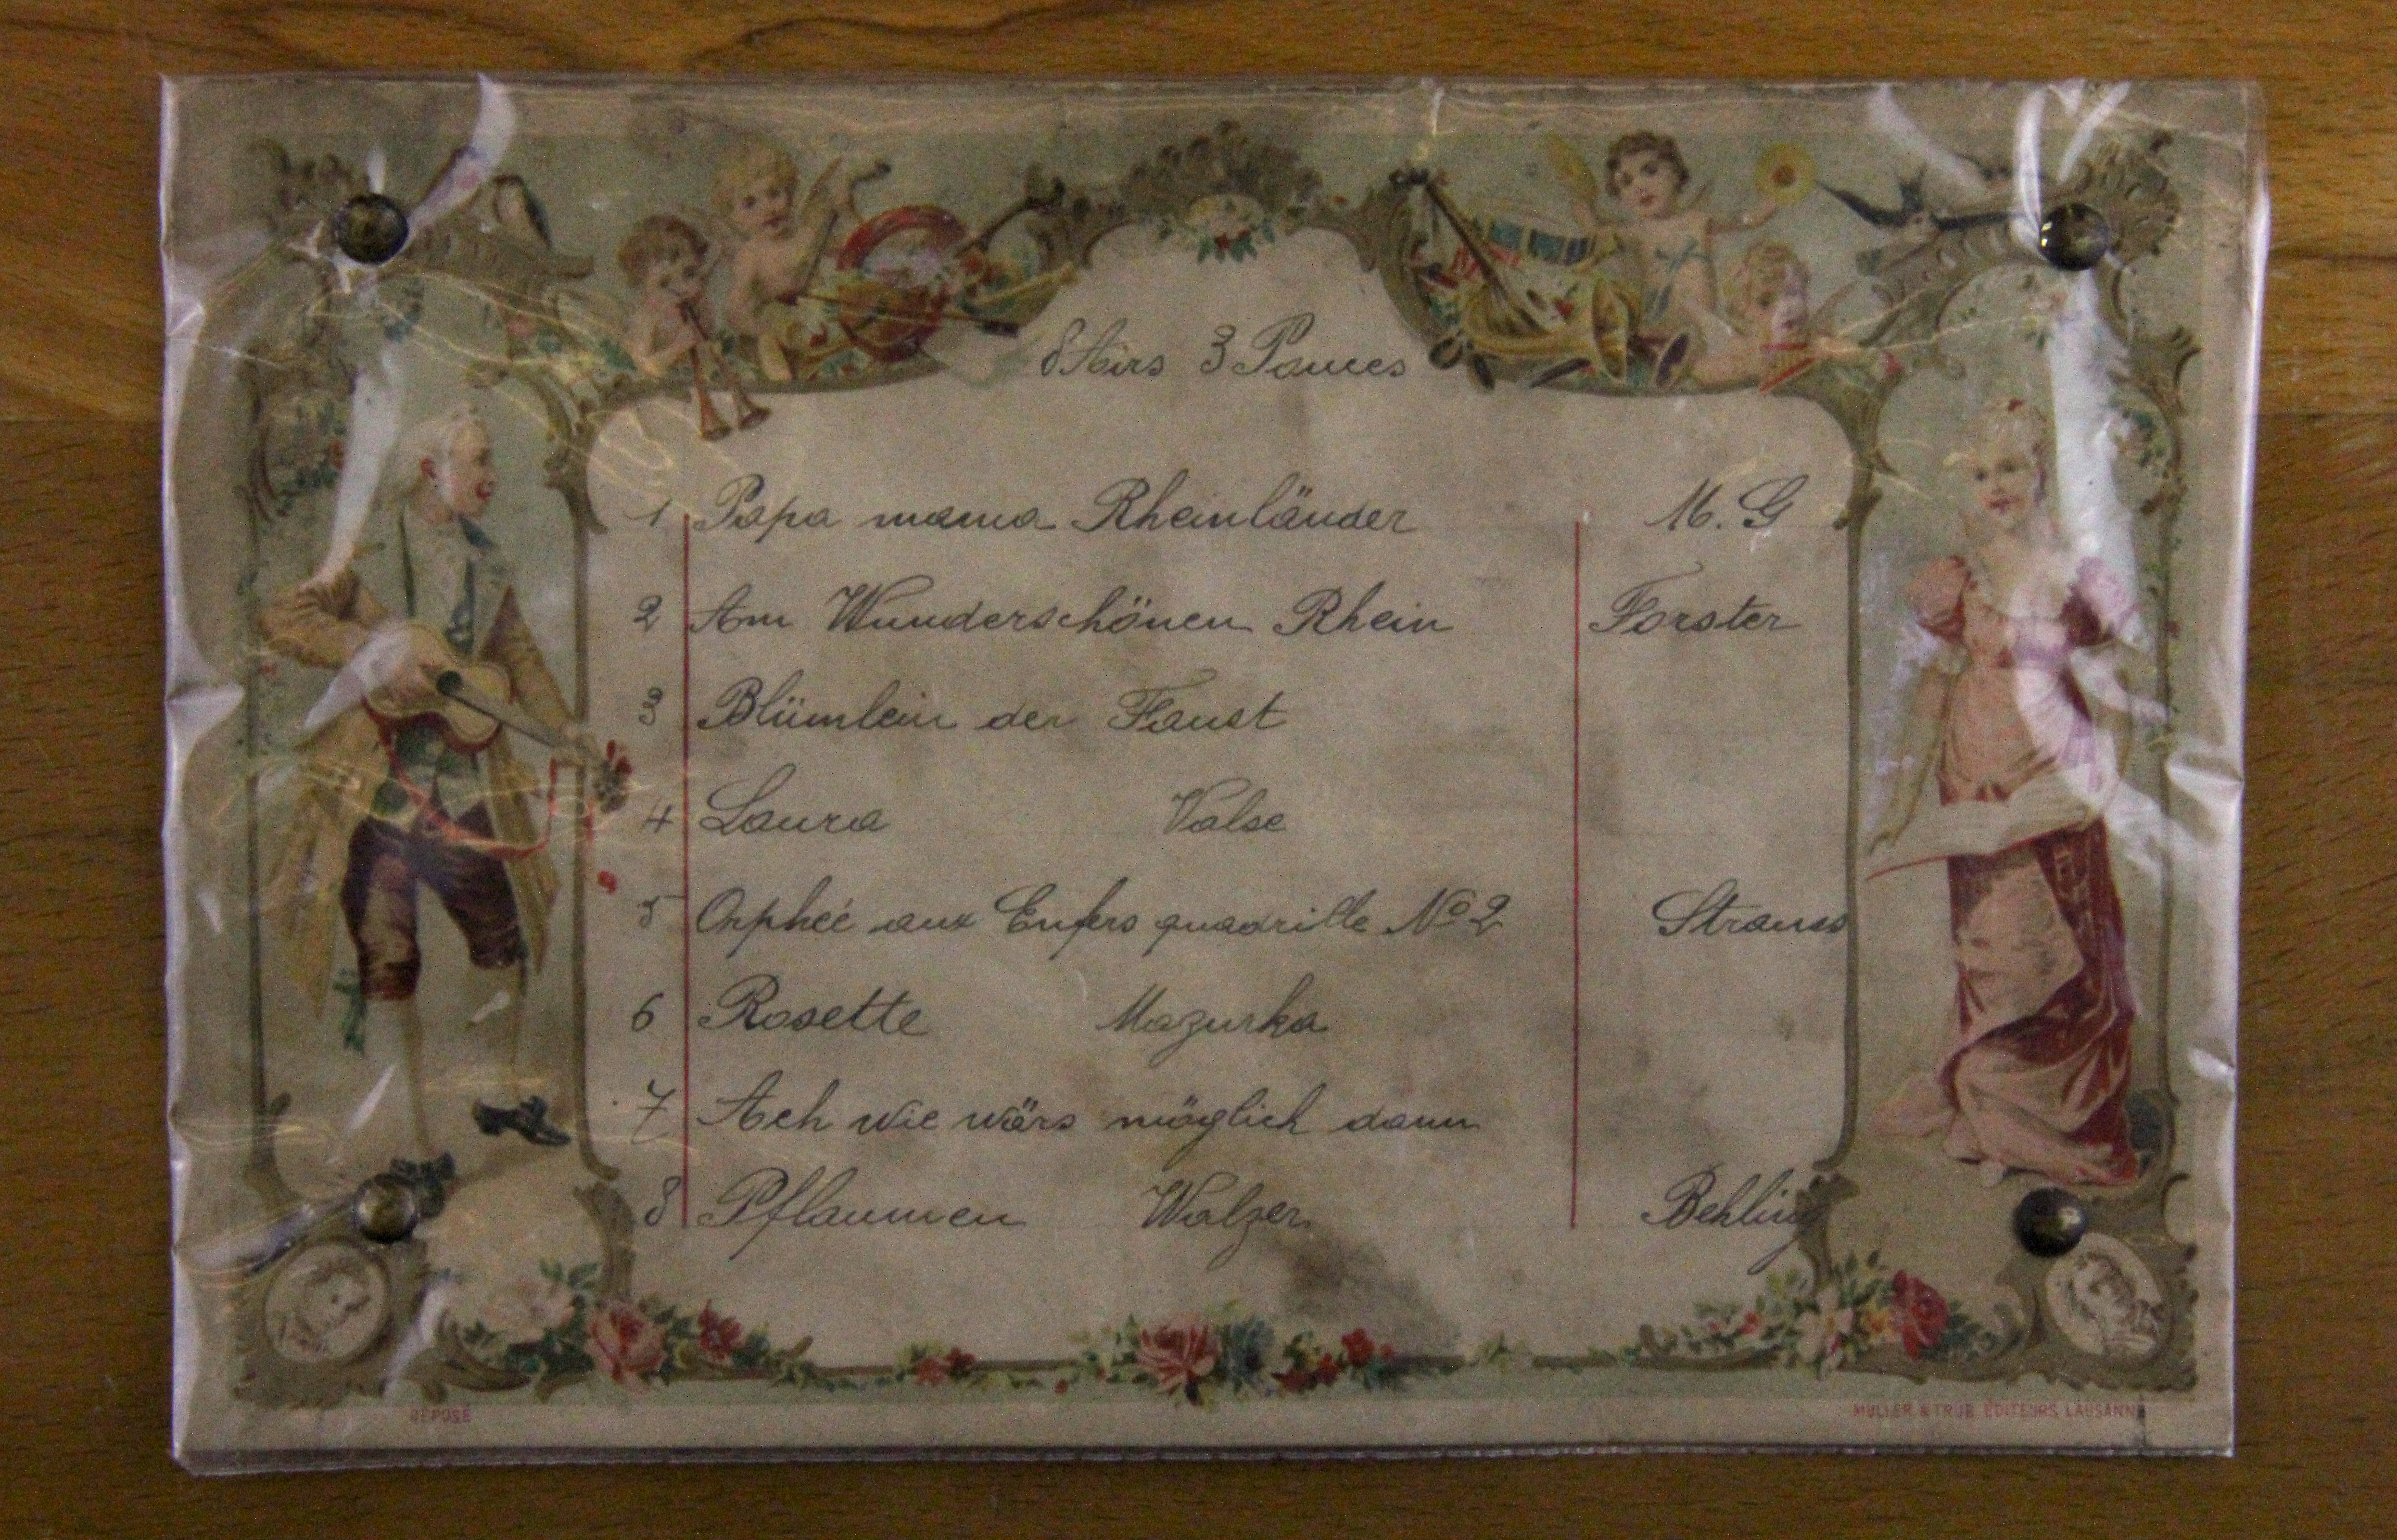 8 Airs 3 Pouces
1 Papa mama Rheinländer M. G
2 Am Wunderschönen Rhein Forster
3 Blümlein der Faust
4 Laura Valse
5 Orpheé aux Enfers quadrille No 2 Strauss
6 Rosette Mazurka
7 Ach wie wärs möglich dann
8 Pflaumen Walzer Behling
DÉPOSÉ MULLER & TRÜB EDITEURS LAUSANNE